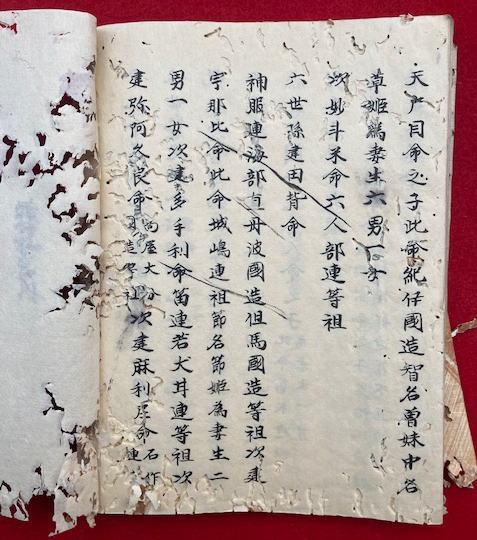 天戸目命之子此命紀伊國造智名曽妹中名
草姫為妻生六男一女
次妙斗米命六人部連等祖
六世孫建田背命
神服連海部直丹波國造但馬國造等祖次建
宇那比命此命城嶋連祖節名節姫為妻生二
男一女次建多手利命笛連若犬耳連等祖次
建弥阿久良命高屋大分國造等祖次建麻利尼命石作連